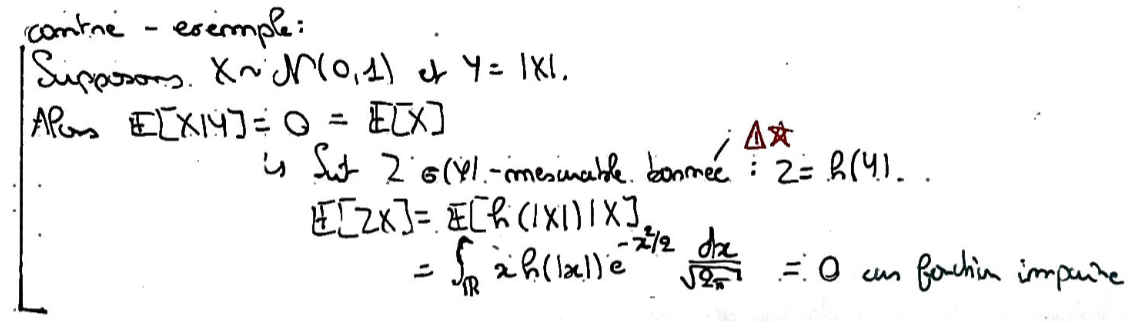 contre - exemple:
Supposons X ~ N(0,1) et Y = |X|.
Alors E[X|Y] = 0 = E[X]
↳ Soit Z σ(Y)-mesurable bornée : Z = h(Y).
E[ZX] = E[h(|X|)X]
= ∫_ℝ x h(|x|) e^{-x²/2} dx/√2π = 0 car fonction impaire